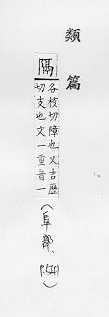 類篇
隔
各核切障也又吉歷
切支也文一重音一
(阜部,